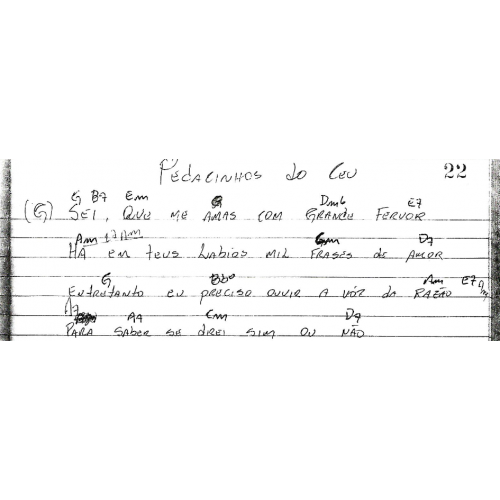 PEDACINHOS DO CEU 22
G B7 Em G Dm6 E7
(G) SEI, QUE ME AMAS COM GRANDE FERVOR
Am E7 Am Cm D7
HÁ EM teus Lábios MIL FRASES DE AMOR
G Bbº Am E7 Am
ENTRETANTO EU PRECISO OUVIR A VÓZ DA RAZÃO
A7 A7 Cm D7
PARA SABER SE DIREI SIM OU NÃO